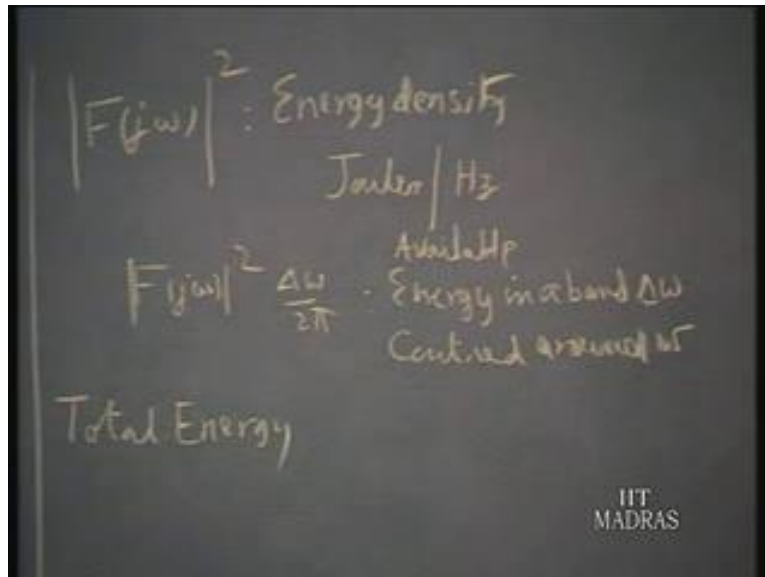 |F(jω)|² : Energy density
Joules | Hz
Available
|F(jω)|² Δω/2π : Energy in a band Δω
Centred around ω
Total Energy
IIT
MADRAS